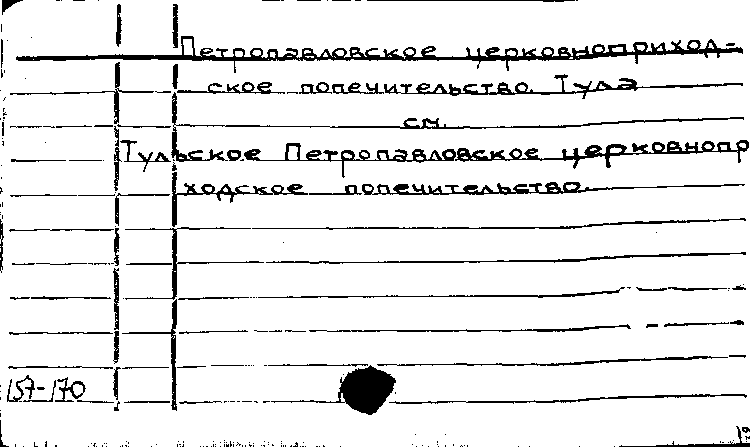 Петропавловское церковноприход-
ское попечительство. Тула
см.
Тульское Петропавловское церковнопр
ходское попечительство.
157-170